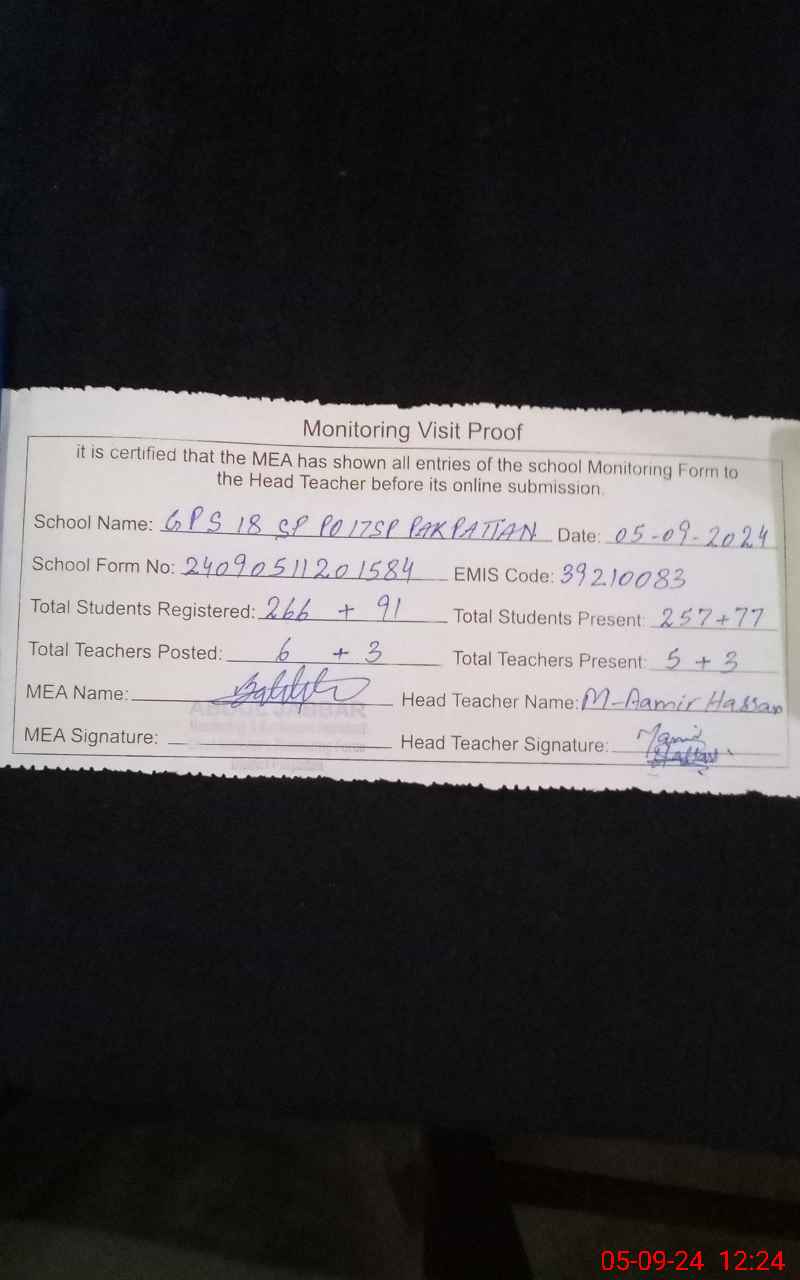 Monitoring Visit Proof
it is certified that the MEA has shown all entries of the school Monitoring Form to
the Head Teacher before its online submission.
School Name: GPS 18 SP PO 17SP PAKPATTAN Date: 05-09-2024
School Form No: 24090511201584 EMIS Code: 39210083
Total Students Registered: 266 + 91 Total Students Present: 257+77
Total Teachers Posted: 6 + 3 Total Teachers Present: 5 + 3
MEA Name: Head Teacher Name: M-Aamir Hassan
JABBAR
MEA Signature: Head Teacher Signature: Mamir Hassan
05-09-24 12:24